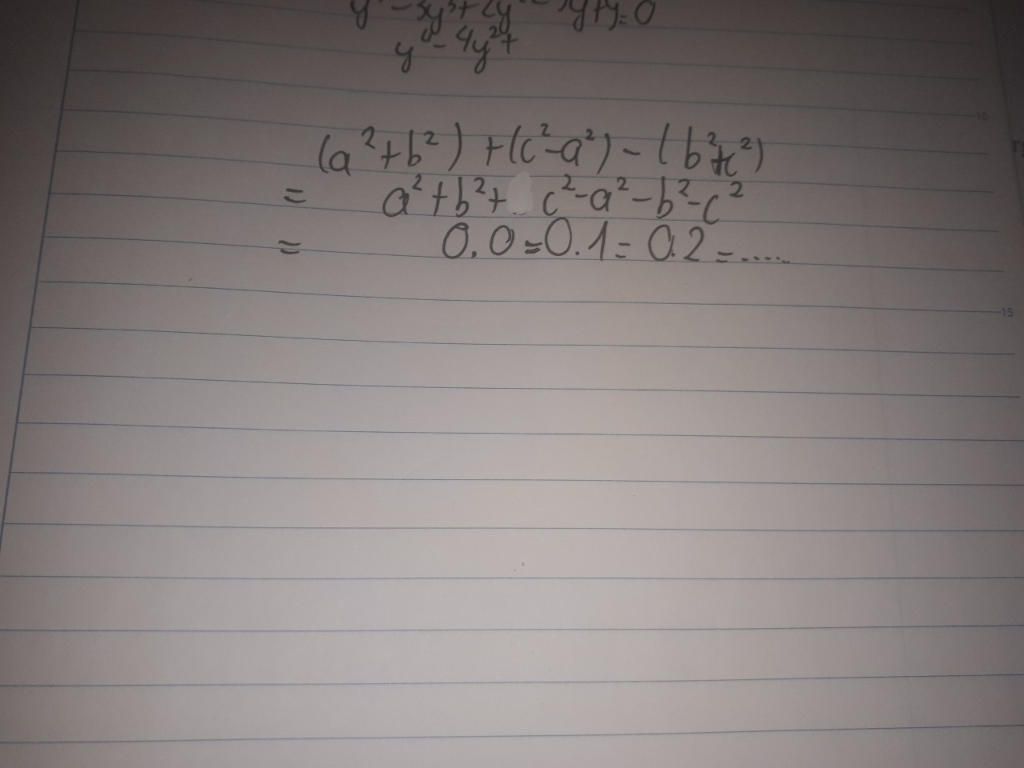 y - 3y³ + 2y - y + y = 0
y - 4y² +
(a² + b²) + (c² - a²) - (b² + c²)
= a² + b² + c² - a² - b² - c²
= 0.0 = 0.1 = 0.2 = .....
15